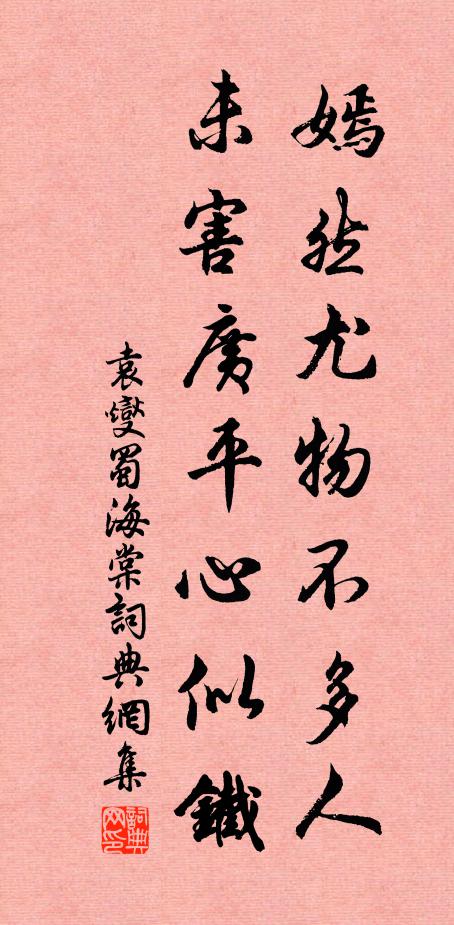 嫣然尤物不多人
未害廣平心似鐵
袁燮蜀海棠詞典網集
詞典网印